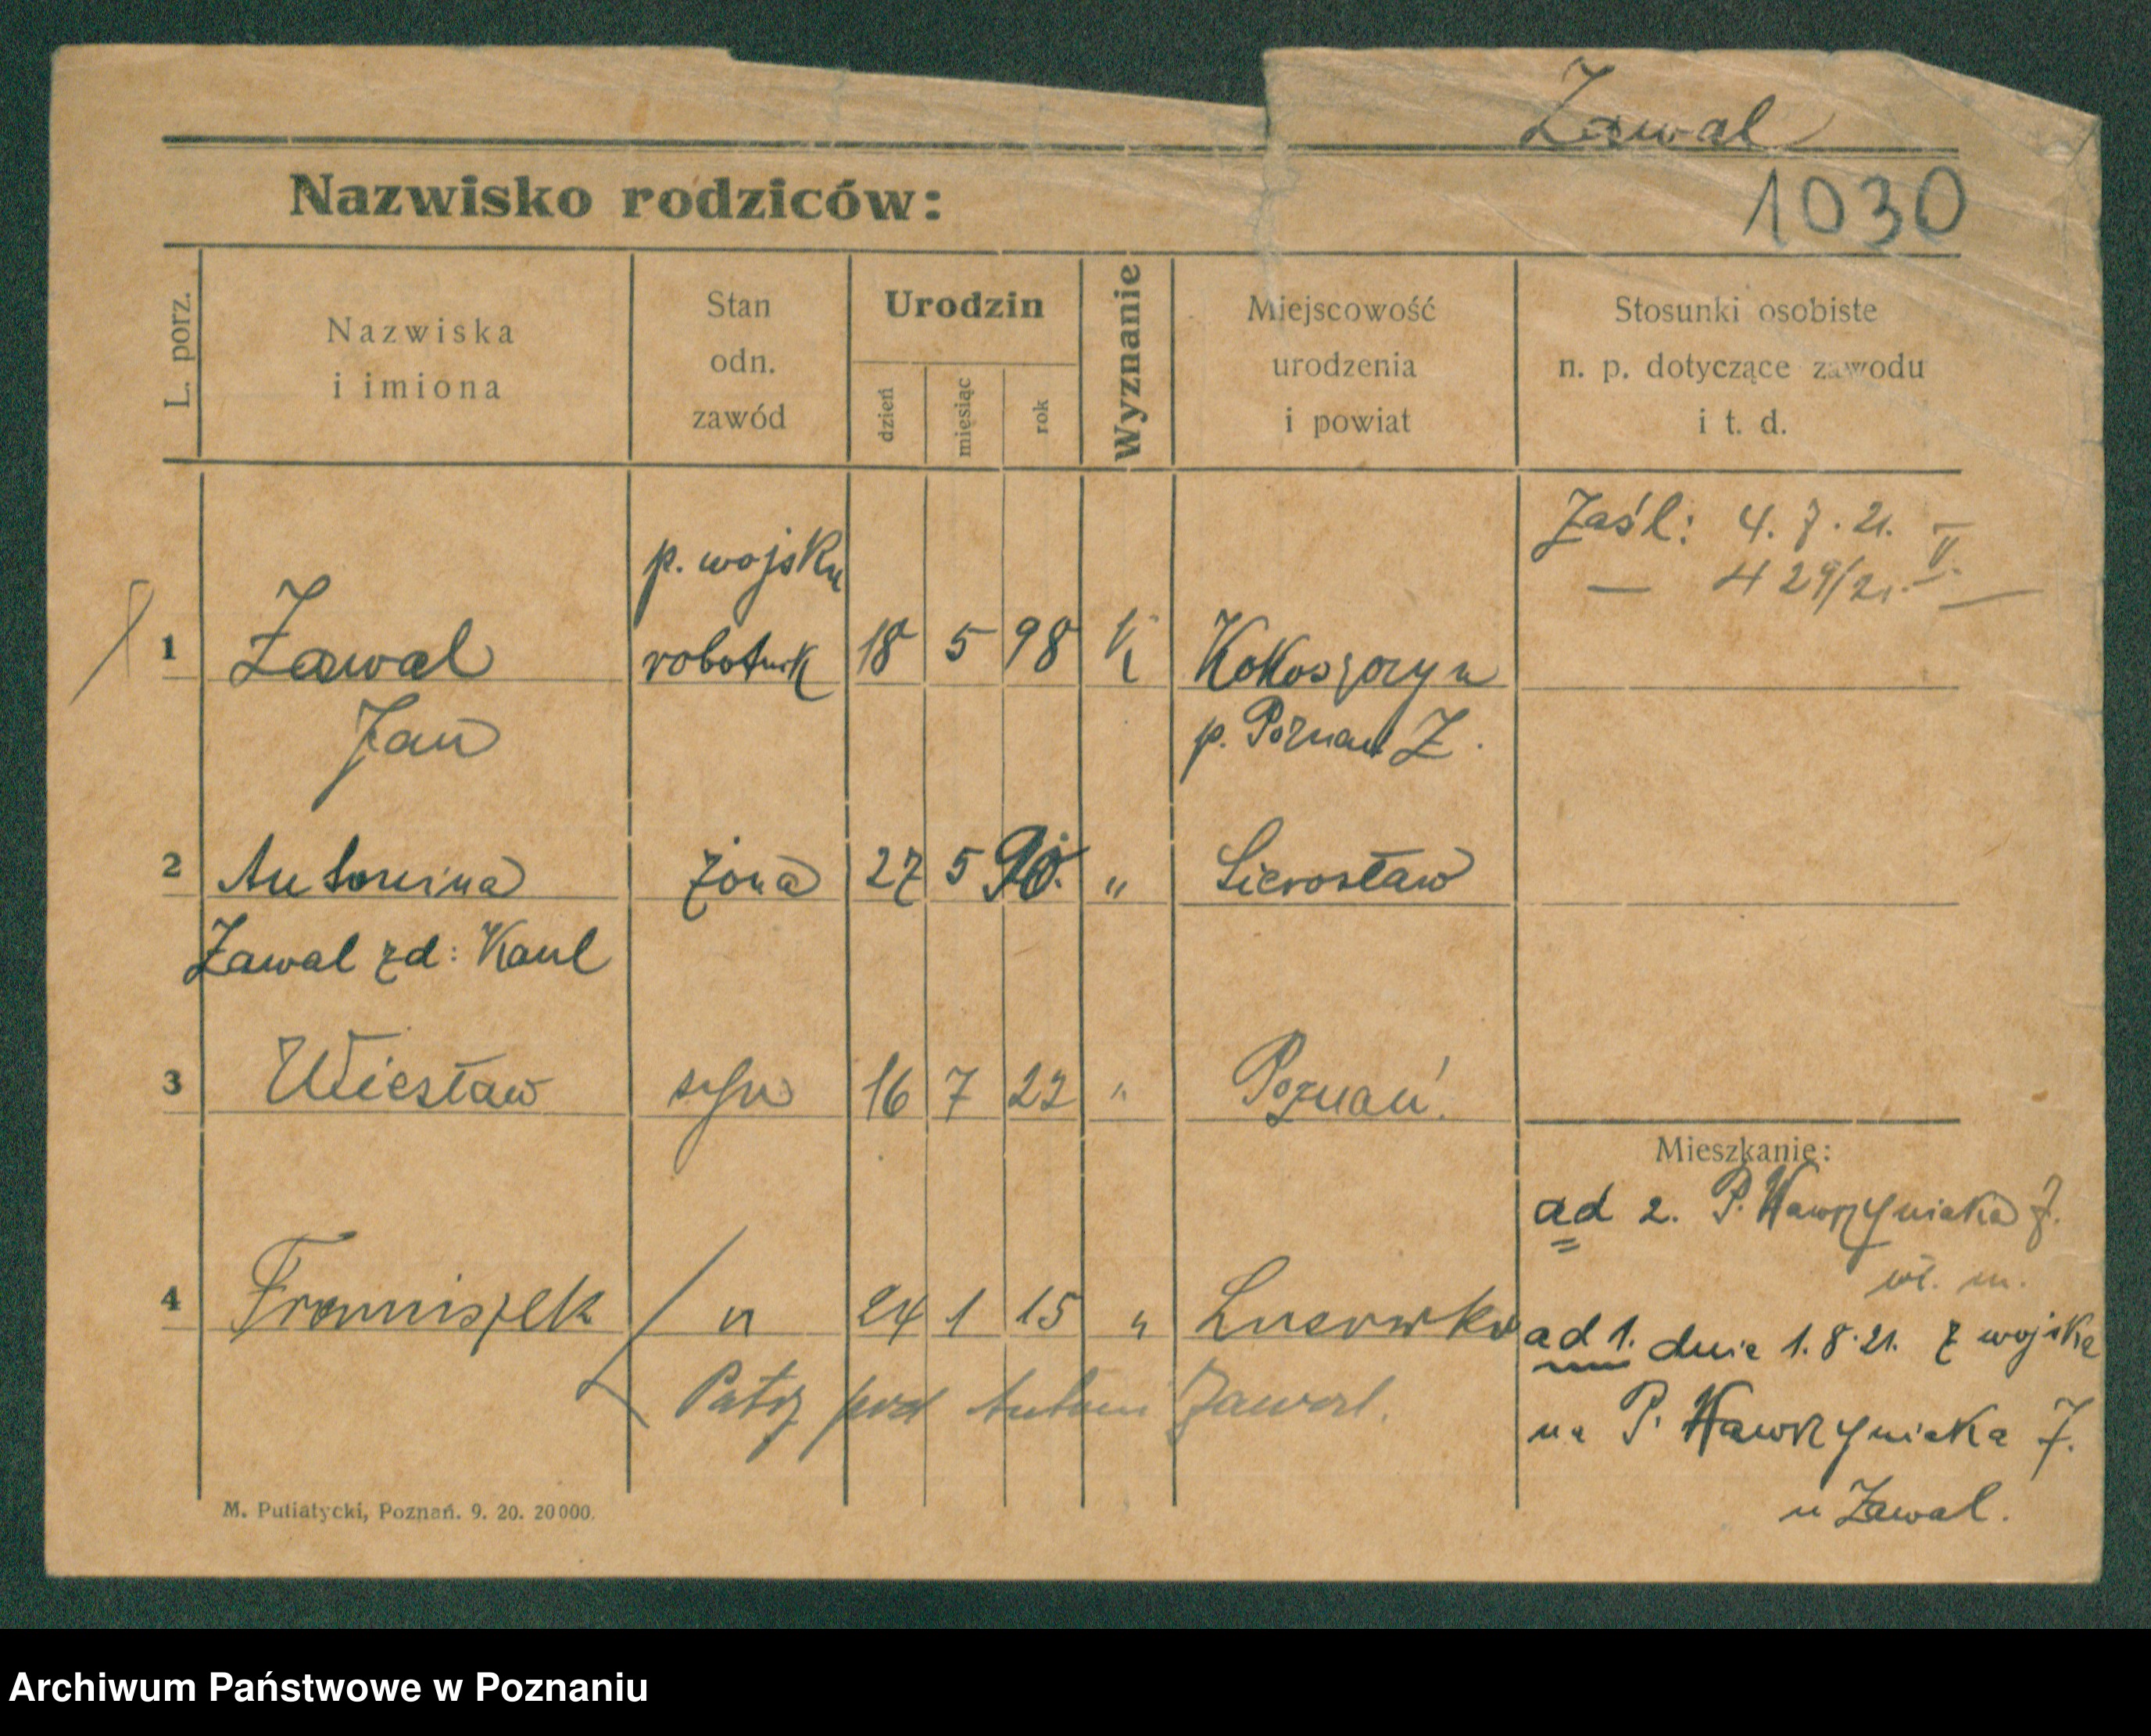 Zawal
Nazwisko rodziców:
1030
L. porz.
Nazwiska
i imiona
Stan
odn.
zawód
Urodzin
dzień
miesiąc
rok
Wyznanie
Miejscowość
urodzenia
i powiat
Stosunki osobiste
n. p. dotyczące zawodu
i t. d.
Zaśl: 4. 7. 21. V.
— 429/21. —
p. wojsku
1 Zawal robotnik 18 5 98 K Kokoszczyn
Jan p. Poznań Z.
2 Antonina żona 27 5 90. " Sierosław
Zawal zd: Kaul
3 Wiesław syn 16 7 22 " Poznań.
Mieszkanie:
ad 2. P. Wawrzyniaka 7.
wł. m.
4 Franciszek " 24 1 15 " Lusowko
ad 1. dnia 1. 8. 21. z wojska
Patrz pod Antoni Zawal.
na P. Wawrzyniaka 7.
u Zawal.
M. Putiatycki, Poznań. 9. 20. 20000.
Archiwum Państwowe w Poznaniu